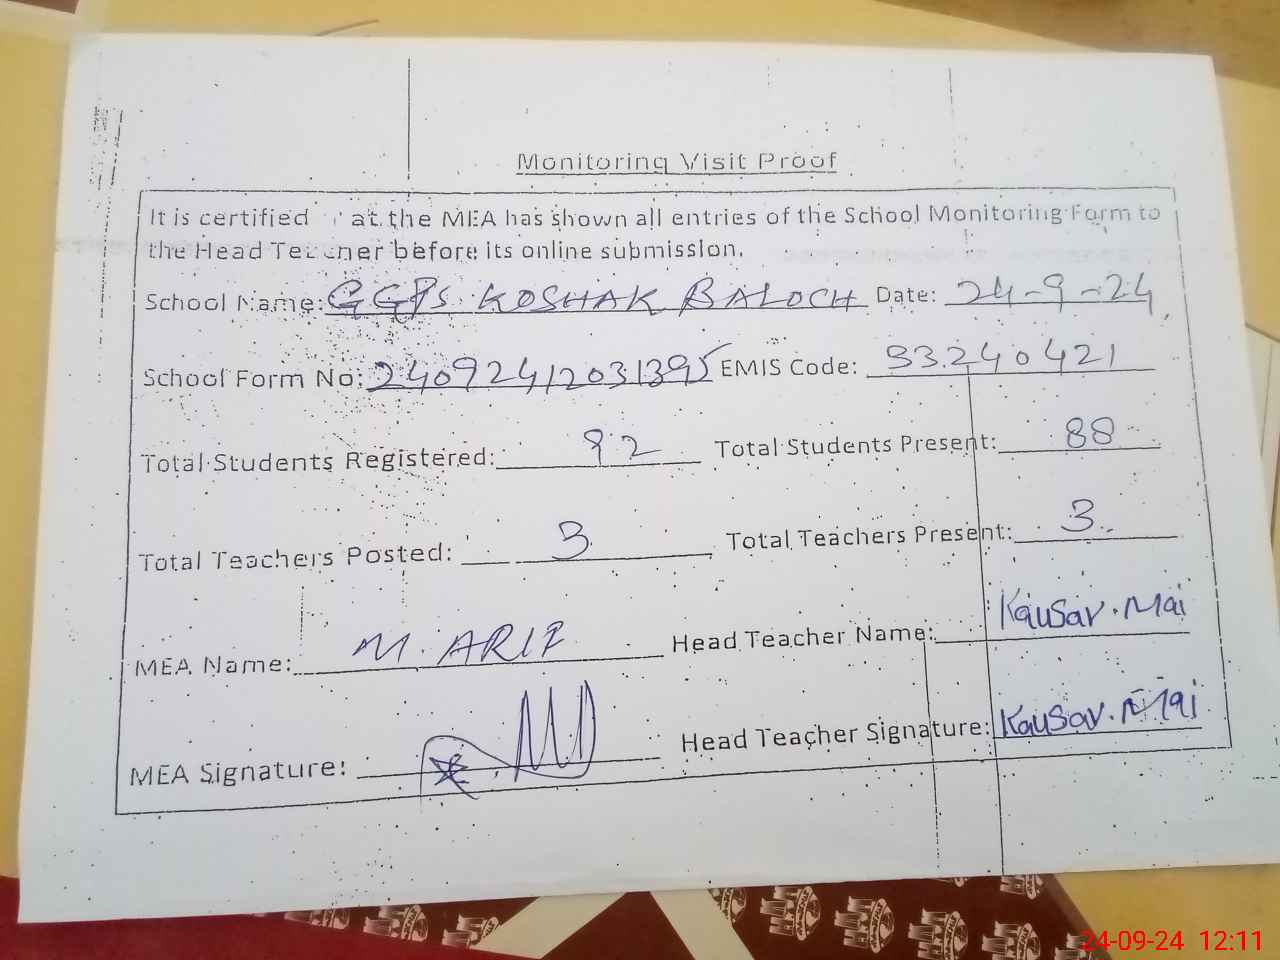 Monitoring Visit Proof
It is certified at the MEA has shown all entries of the School Monitoring Form to
the Head Teacher before its online submission.
School Name: GGPS KOSHAK BALOCH Date: 24-9-24
School Form No: 24092412031395 EMIS Code: 33240421
Total Students Registered: 92 Total Students Present: 88
Total Teachers Posted: 3 Total Teachers Present: 3
MEA Name: M. ARIF Head Teacher Name: Kausar. Mai
MEA Signature: Head Teacher Signature: Kausar. Mai
24-09-24 12:11